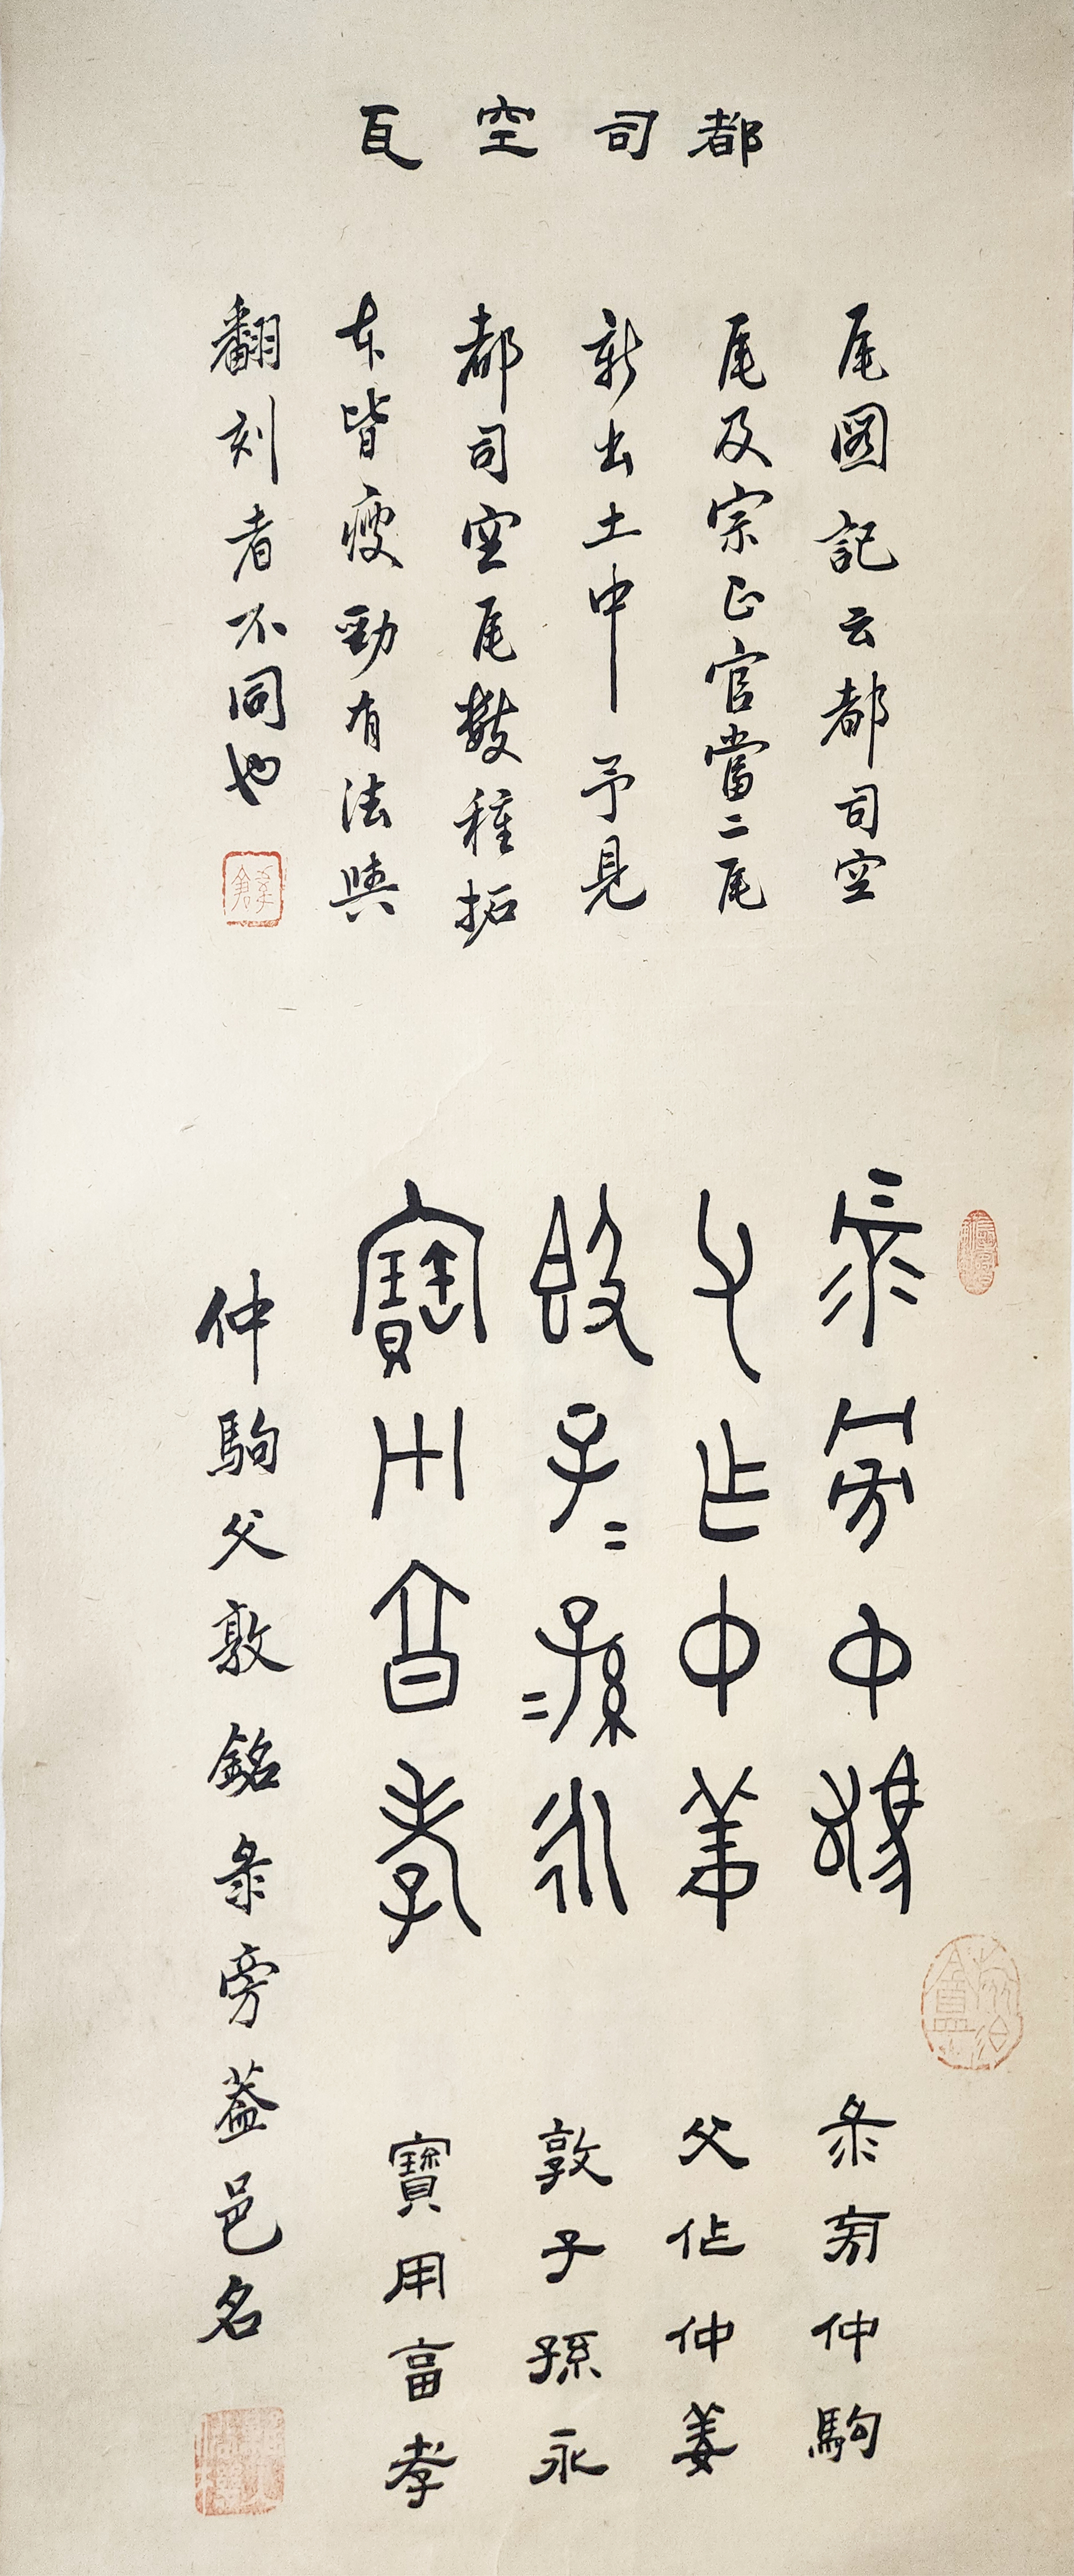 都司空瓦
瓦圖記云都司空
瓦及宗正官當二瓦
新出土中予見
都司空瓦數種拓
本皆瘦勁有法與
翻刻者不同也
彔旁中駒
父乍中姜
敦子=孫=永
寶用亯孝
彔旁仲駒
父作仲姜
敦子孫永
寶用亯孝
仲駒父敦銘彔旁蓋邑名